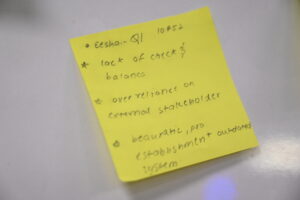 • Eesha - Q1 10#52
* lack of check &
balance
• over reliance on
external stakeholder
• beauratic, pro
establishment outdated
system